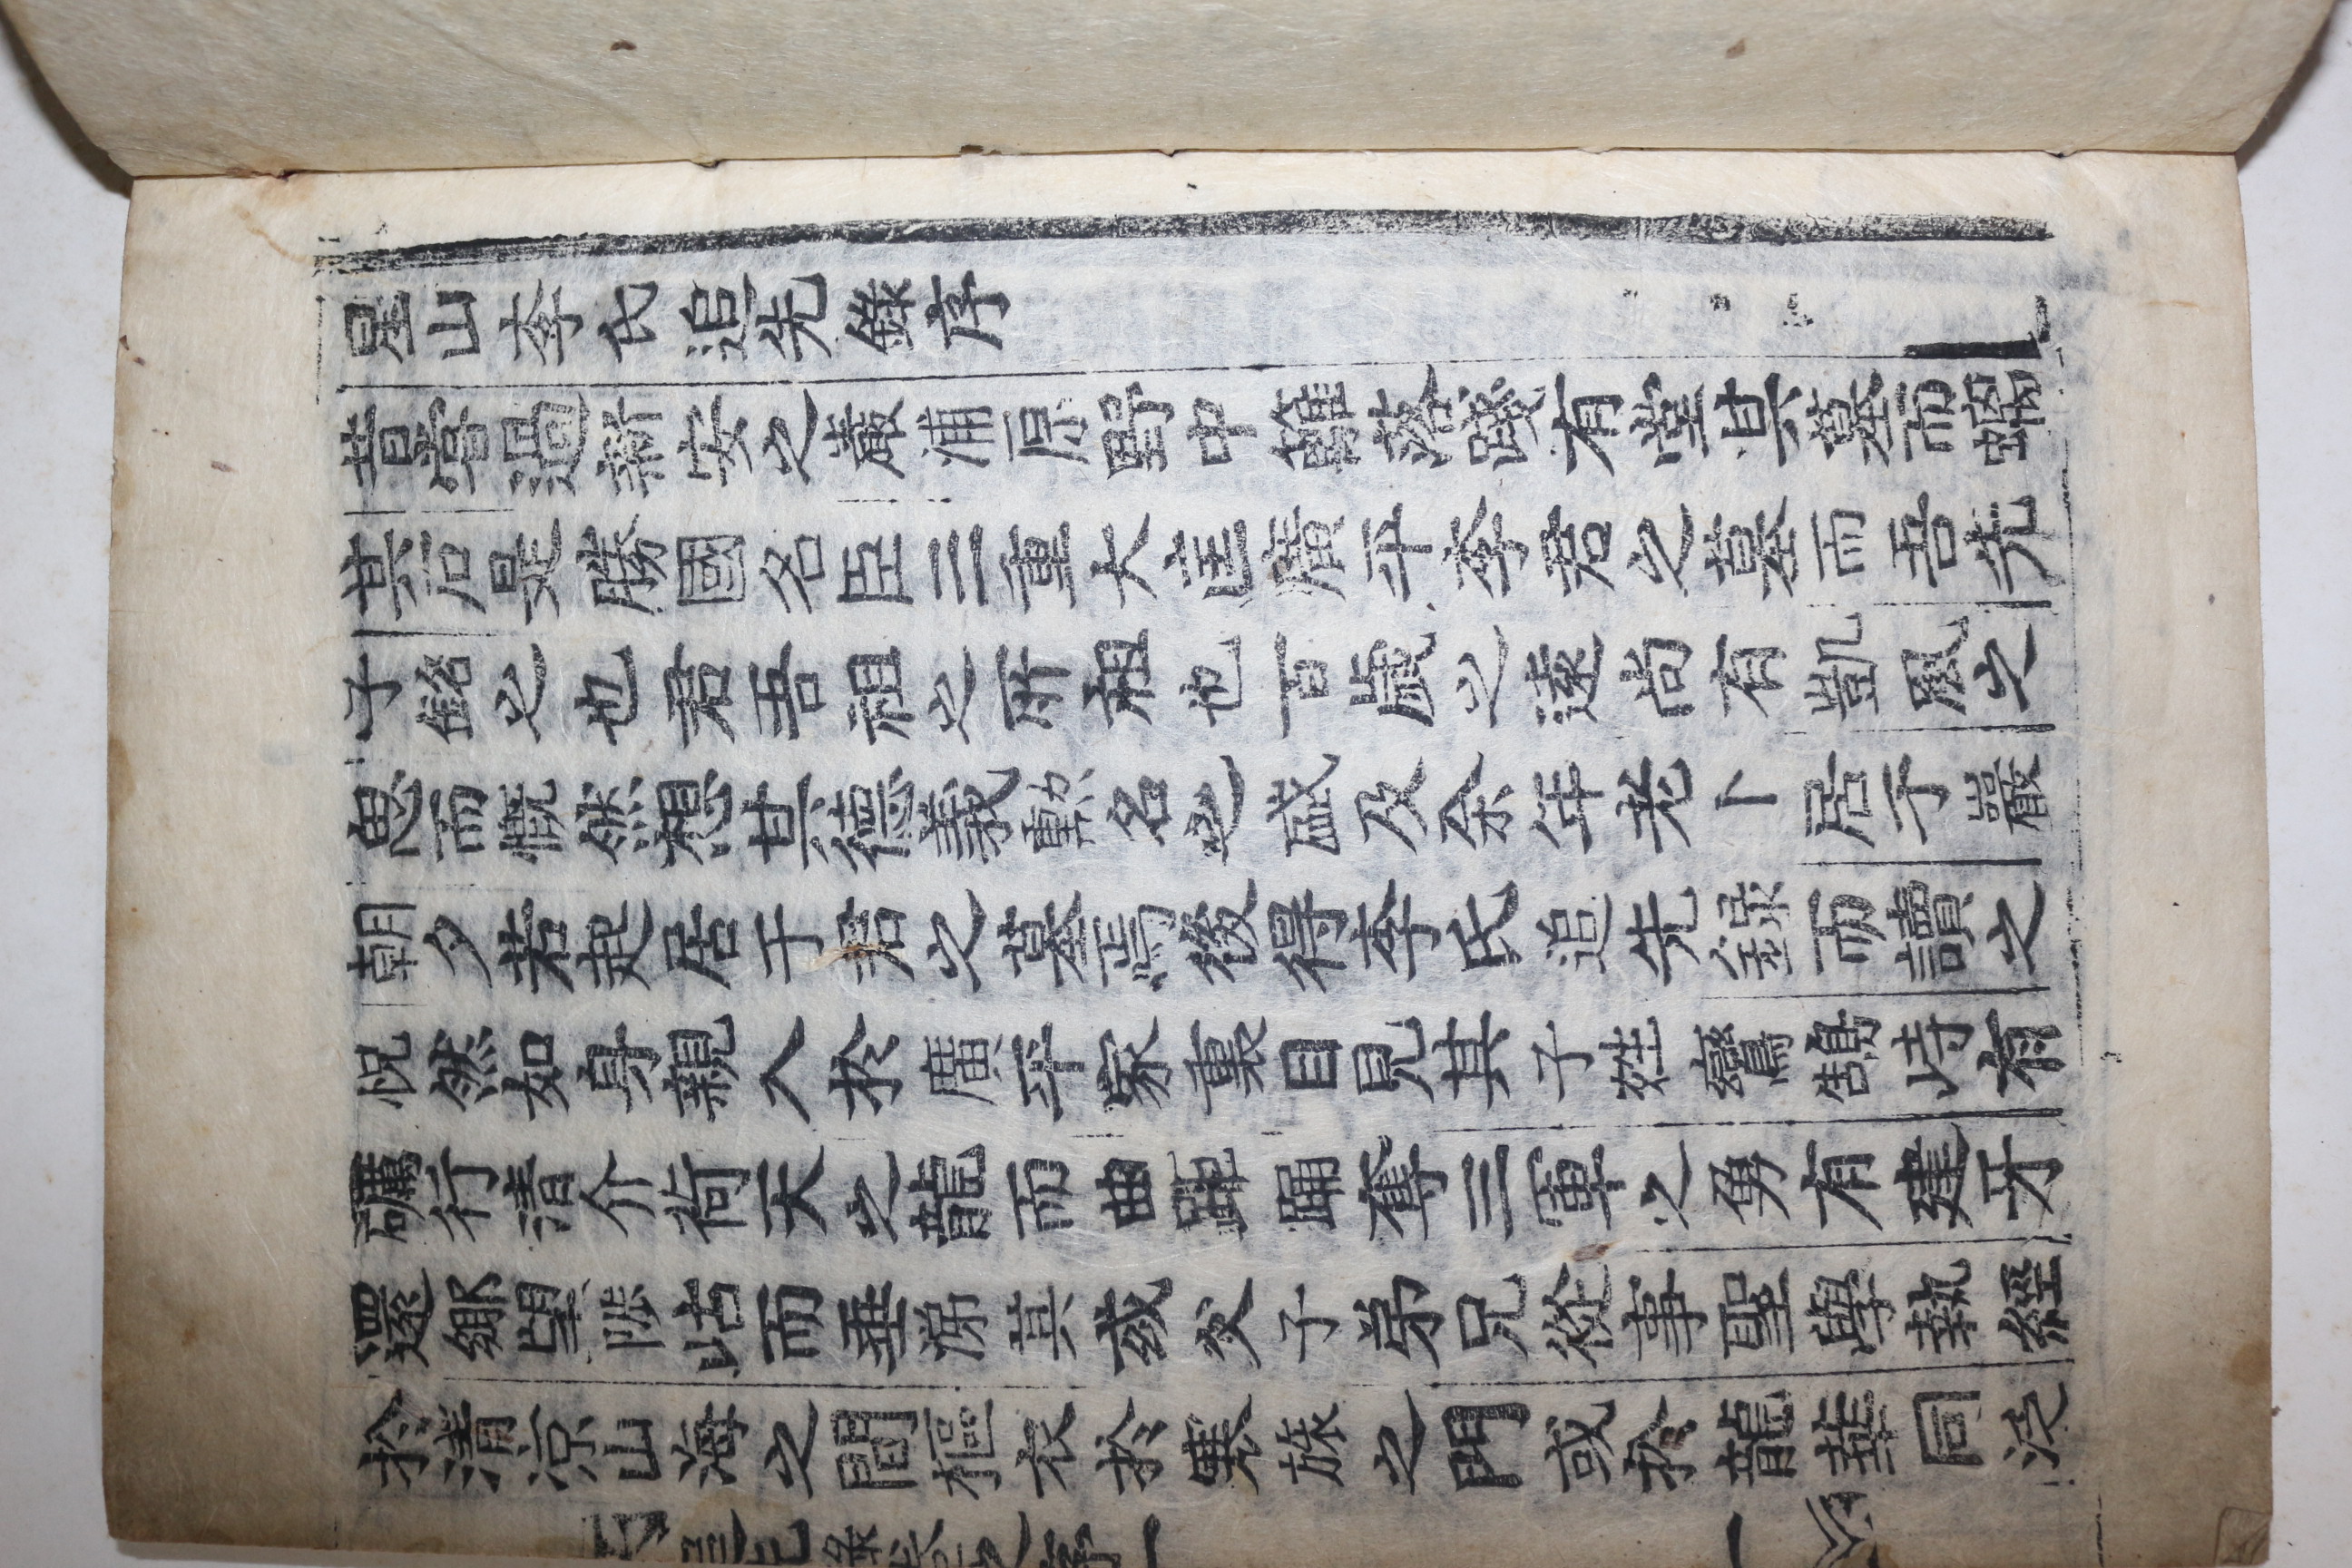 星山李氏追先錄序
昔嘗過新安之巖浦原野中籬落殘有堂其墓而螭
其石是勝國名臣三重大匡廣平李君之墓而吾先
子銘之也君吾祖之所祖也百歲之遠尚有凱風之
思而慨然想其德義勲名之盛及余年老卜居于巖
朝夕若起居于君之墓焉後得李氏追先錄而讀之
怳然如身親入於廣平家裏目見其子姓鸞鵠峙有
礪行清介荷天之龍而曲踊踊奪三軍之勇有建牙
還鄉望陟岵而垂涕其或父子弟兄從事聖學執經
於清凉山海之間摳衣於寒旅之門或於龍華同泛
追先錄卷之序一
一